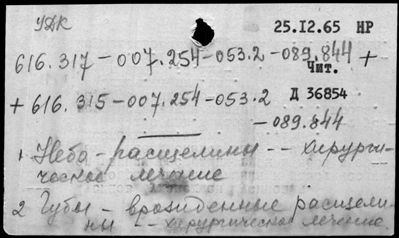 УДК
25.12.65 НР
616.317-007.254-053.2-089.844 +
Чит.
+ 616.315-007.254-053.2
Д 36854
-089.844
1 Небо - расщелины -- хирурги-
ческое лечение
2 Губы - врожденные расщели-
ны -- хирургическое лечение.